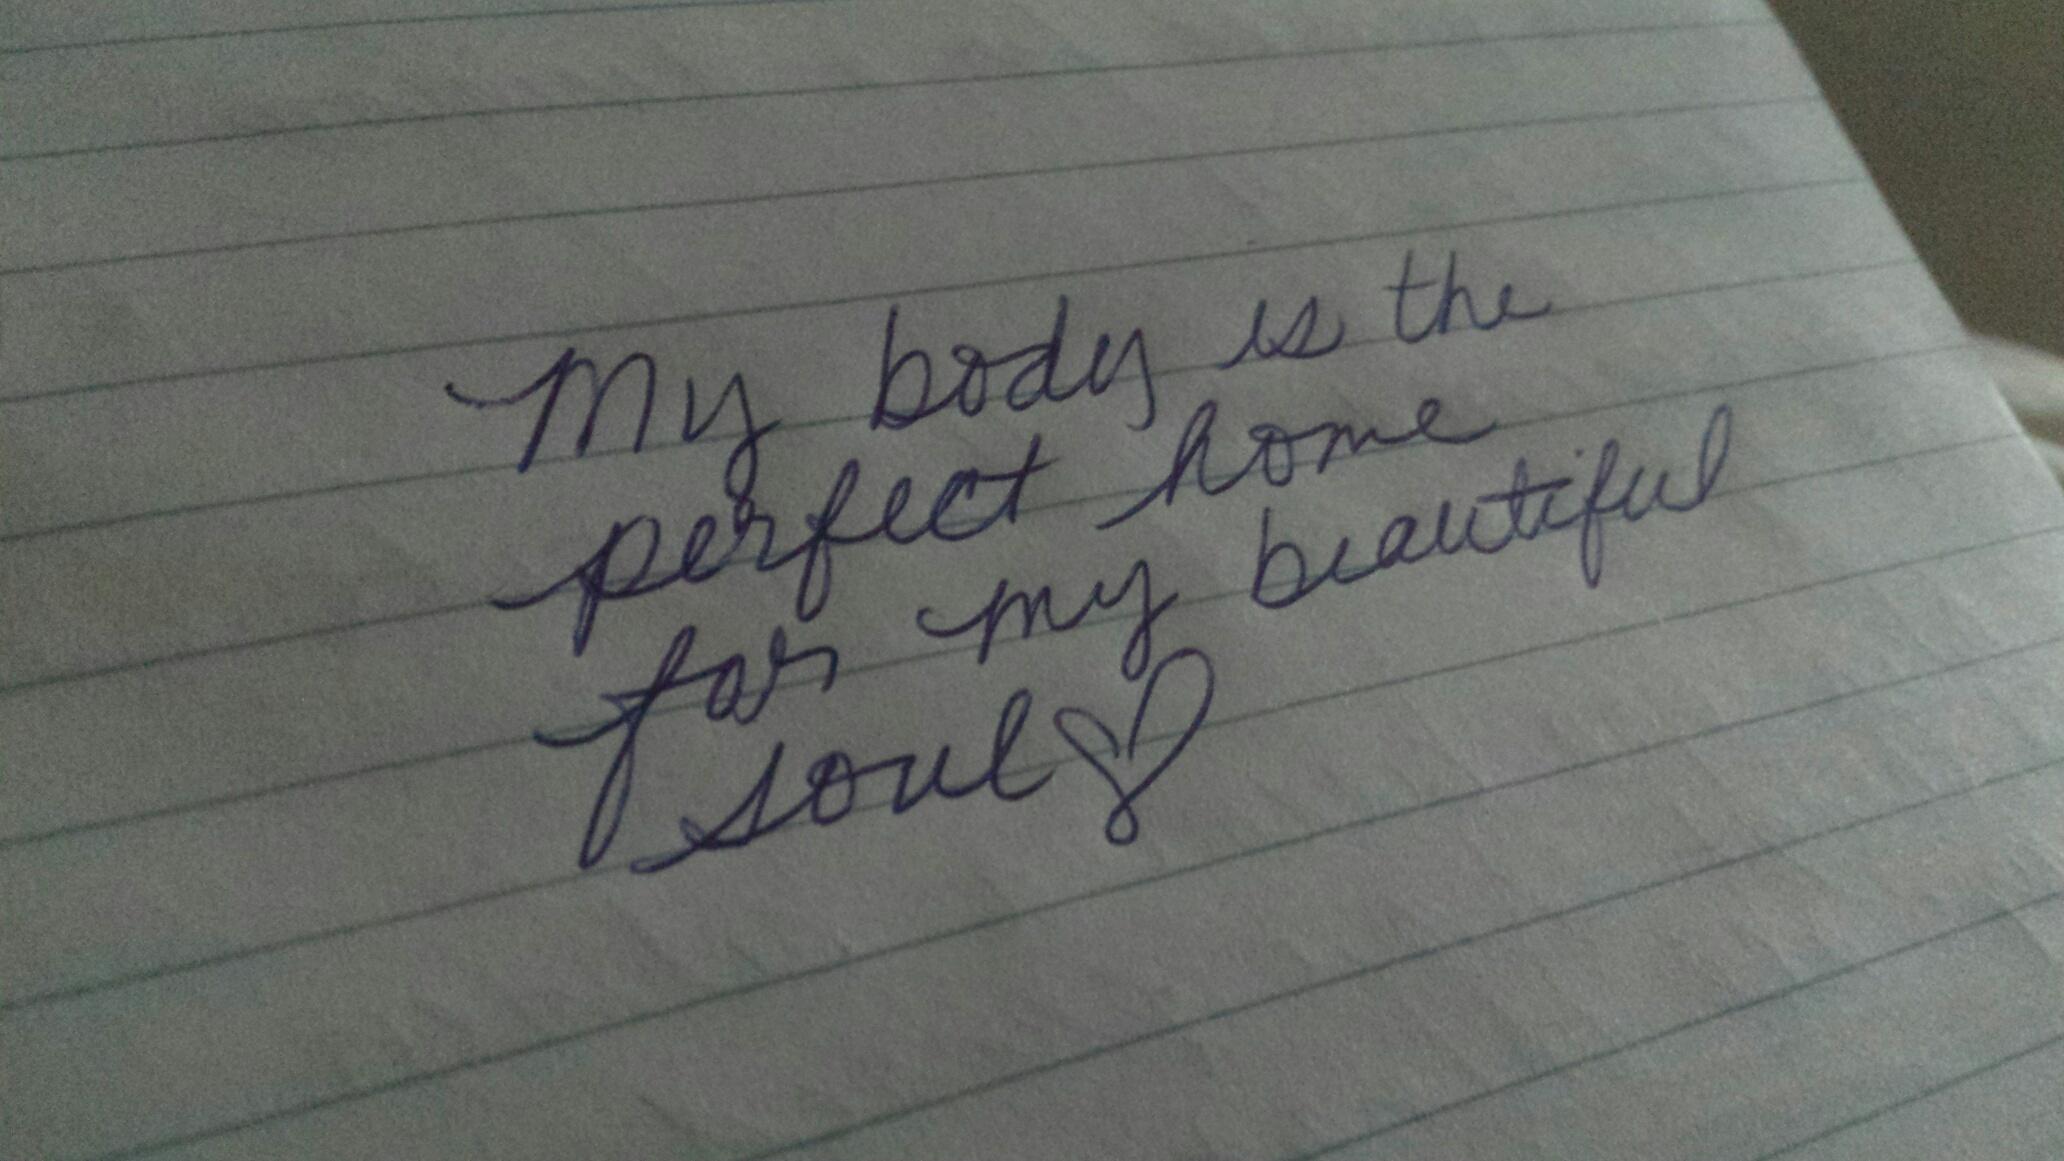 My body is the
perfect home
for my beautiful
soul♡